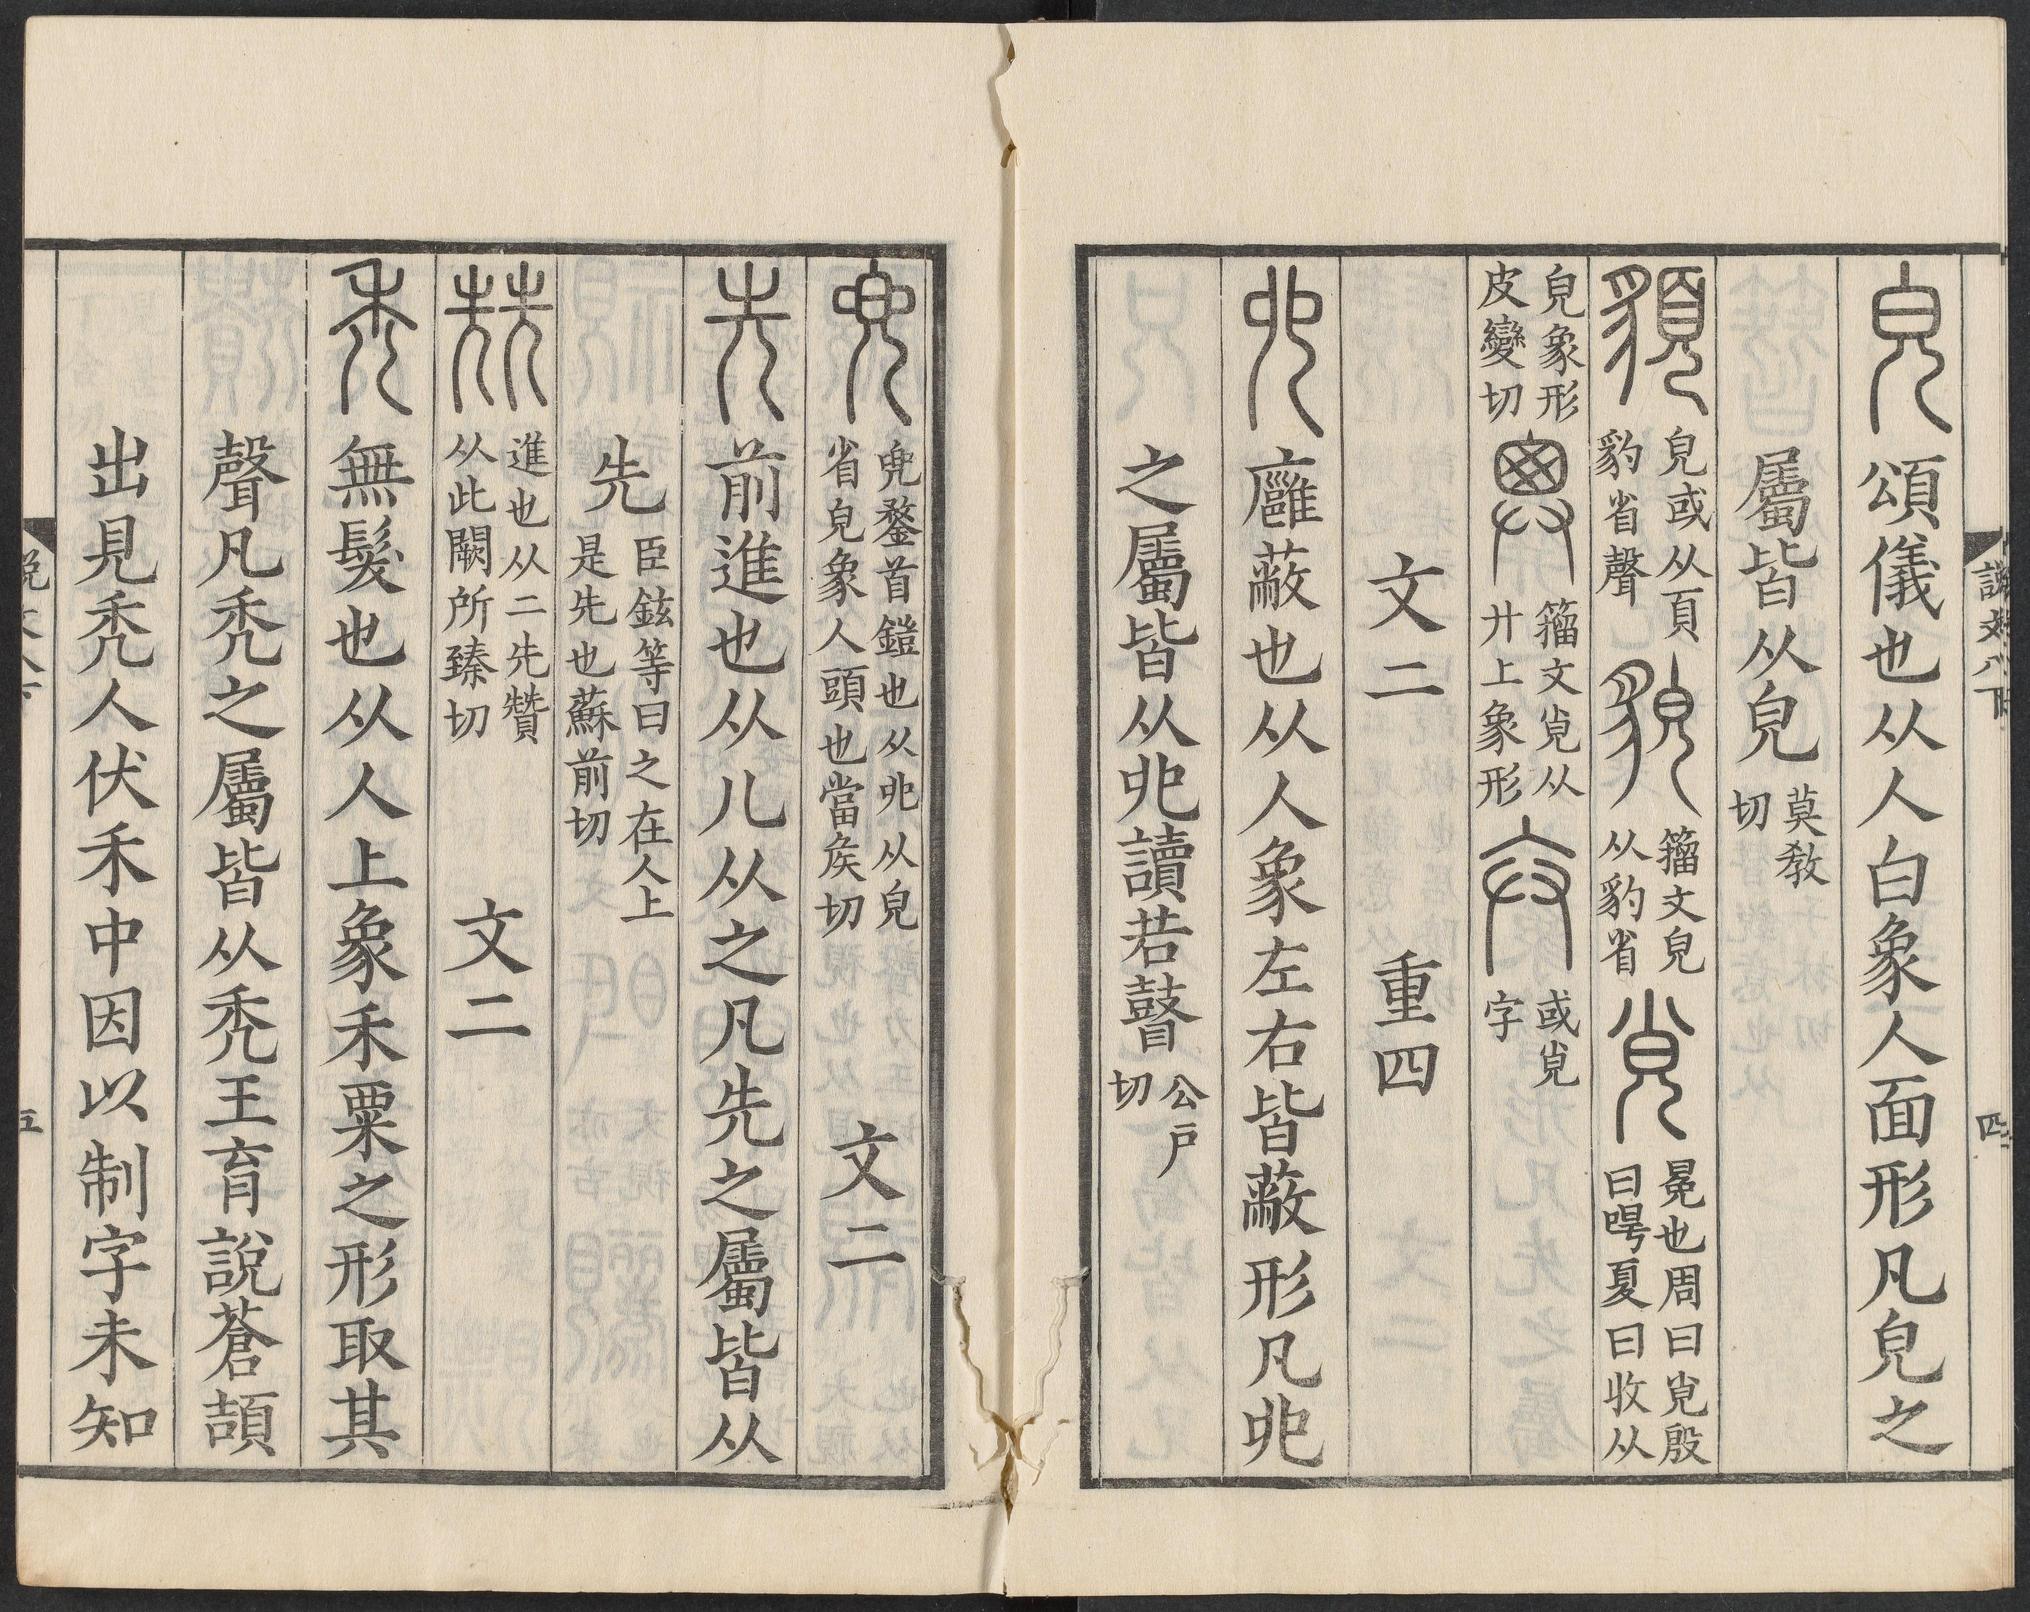 皃頌儀也从人白象人面形凡皃之
屬皆从皃莫教切
䫉皃或从頁豹省聲貌籀文皃从豹省覍冕也周曰覍殷曰吁夏曰收从
皃象形皮變切籀文覍从廾上象形弁或覍字
文二　重四
𠑹廱蔽也从人象左右皆蔽形凡𠑹
之屬皆从𠑹讀若瞽公戶切
兜兜鍪首鎧也从𠑹从皃省皃象人頭也當矦切　文二
先前進也从儿从之凡先之屬皆从
先臣鉉等曰之在人上是先也蘇前切
兟進也从二先贊从此闕所臻切　文二
禿無髮也从人上象禾粟之形取其
聲凡禿之屬皆从禿王育說蒼頡
出見禿人伏禾中因以制字未知
說文八下
四
說文八下
五